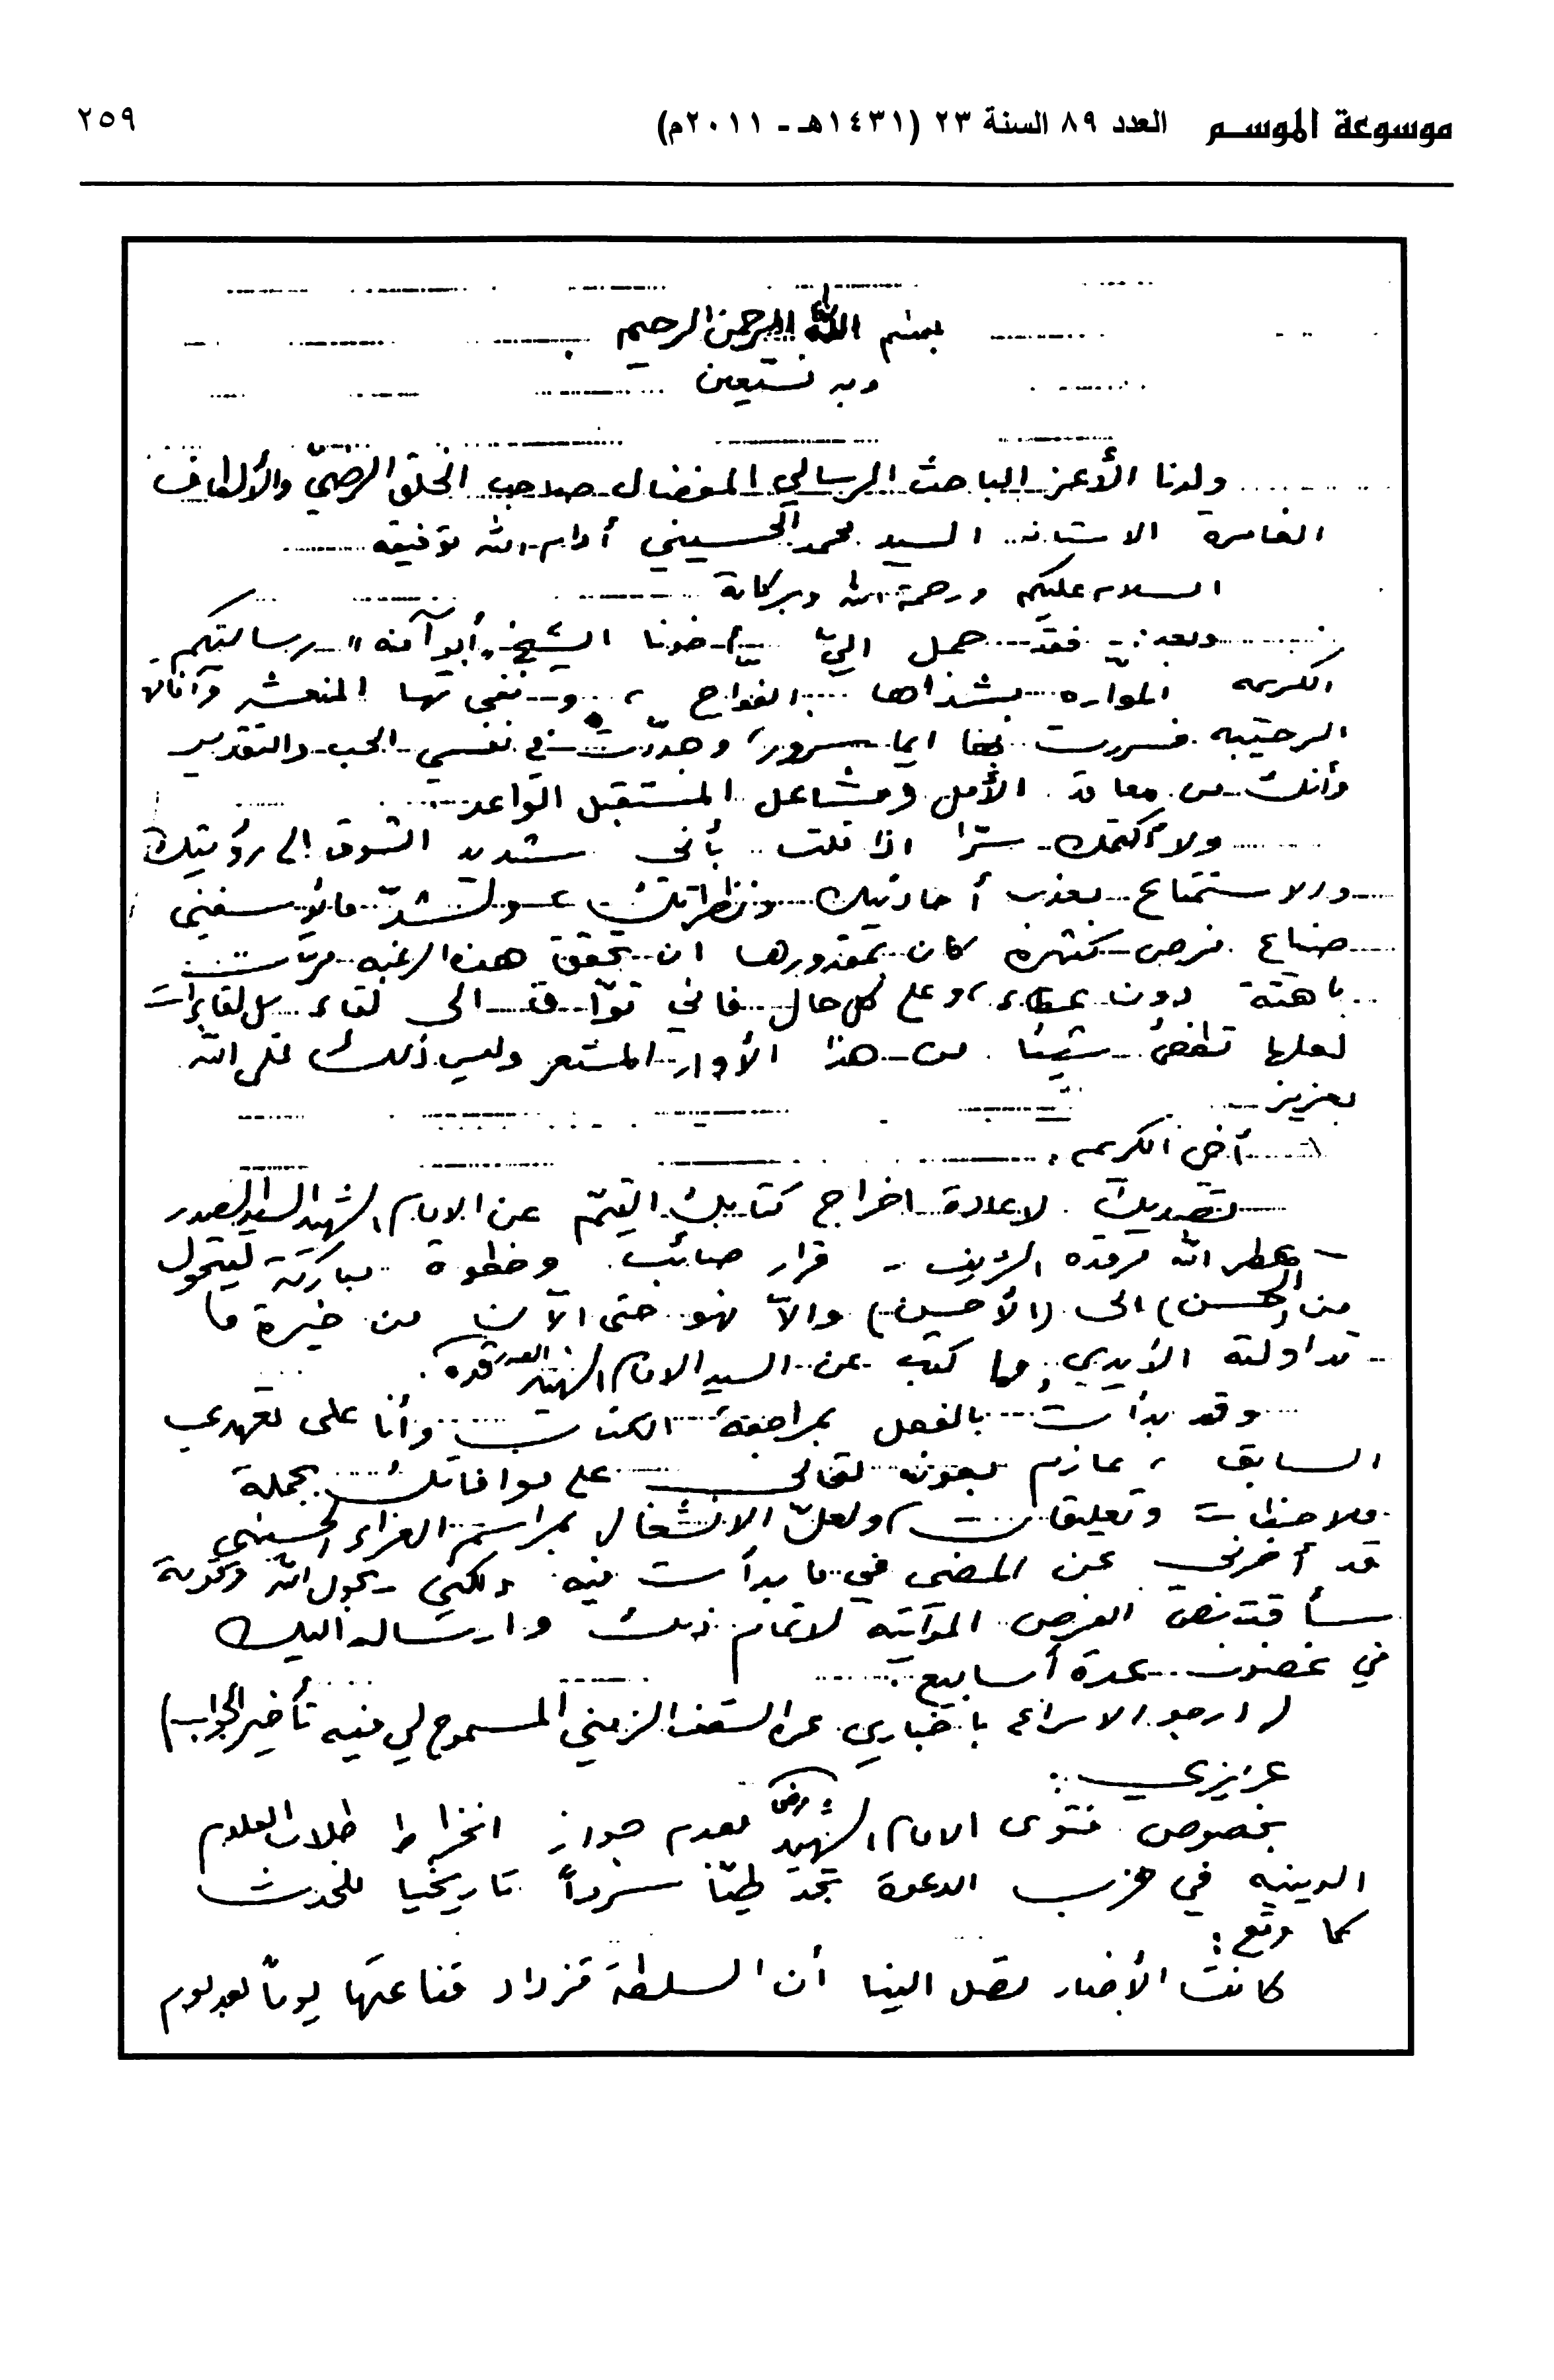 موسوعة الموسم العدد ٨٩ السنة ٢٣ (١٤٣١هـ - ٢٠١١م) ٢٥٩
بسم الله الرحمن الرحيم
وبه نستعين
ولدنا الأعز الباحث الرسالي المفضال صاحب الخلق الرضيّ والألطاف
الغامرة الاستاذ السيد محمد الحسيني أدام الله توفيقه
السلام عليكم ورحمة الله وبركاته
وبعد: فقد حمل اليّ الشيخ "أبو آمنه" رسالتكم
الكريمه بشذاها الفواح، و المنعشه وآفاقها
الرحيبه فسررت بها ايما سرور، وجددت في نفسي الحب والتقدير
وأنك من الأمل ومشاعل المستقبل الواعد
ولا أكتمك سرّا اذا قلت بأني شديد الشوق الى رؤيتك
والاستمتاع بعذب أحاديثك ونظراتك ما يؤسفني
ضياع فرص كثيره كان بمقدورها ان تحقق هذه الرغبه مرّت
باهتة دون عطاء، وعلى كل حال فاني توّاق الى لقاء بل لقاءات
لعلها تطفئ شيئا من هذا الأوار المستعر وليس ذلك على الله
بعزيز
أخي الكريم،
تصديك لاعادة اخراج كتابك القيّم عن الامام الشهيد السيد الصدر
- عطر الله مرقده الشريف - قرار صائب وخطوة مباركة ليتحول
من (الحسن) الى (الأحسن) والاّ فهو حتى الآن من خيرة ما
تداولته الأيدي مما كتب عن السيد الامام الشهيد الصدر قده.
وقد بدأت بالفعل بمراجعة الكتاب وأنا على تعهدي
السابق، عازم بعونه تعالى على موافاتك بجملة
ملاحظات وتعليقات، ولعلّ الانشغال بمراسم العزاء الحسيني
قد أخرني عن المضي في ما بدأت فيه ولكني - بحول الله وقوته
سأقتنص الفرص المؤاتيه لاتمام ذلك وارساله اليك
في غضون عدة أسابيع.
(ارجو الاسراع باخباري عن السقف الزمني المسموح لي فيه تأخير الجواب)
عزيزي:
بخصوص فتوى الامام الشهيد "رض" بعدم جواز انخراط طلاب العلوم
الدينيه في حزب الدعوة تجد طيّا سرداً تاريخيا للحدث
كما وقع:
كانت الأخبار تصل الينا أن السلطة تزداد قناعتها يوماً بعد يوم